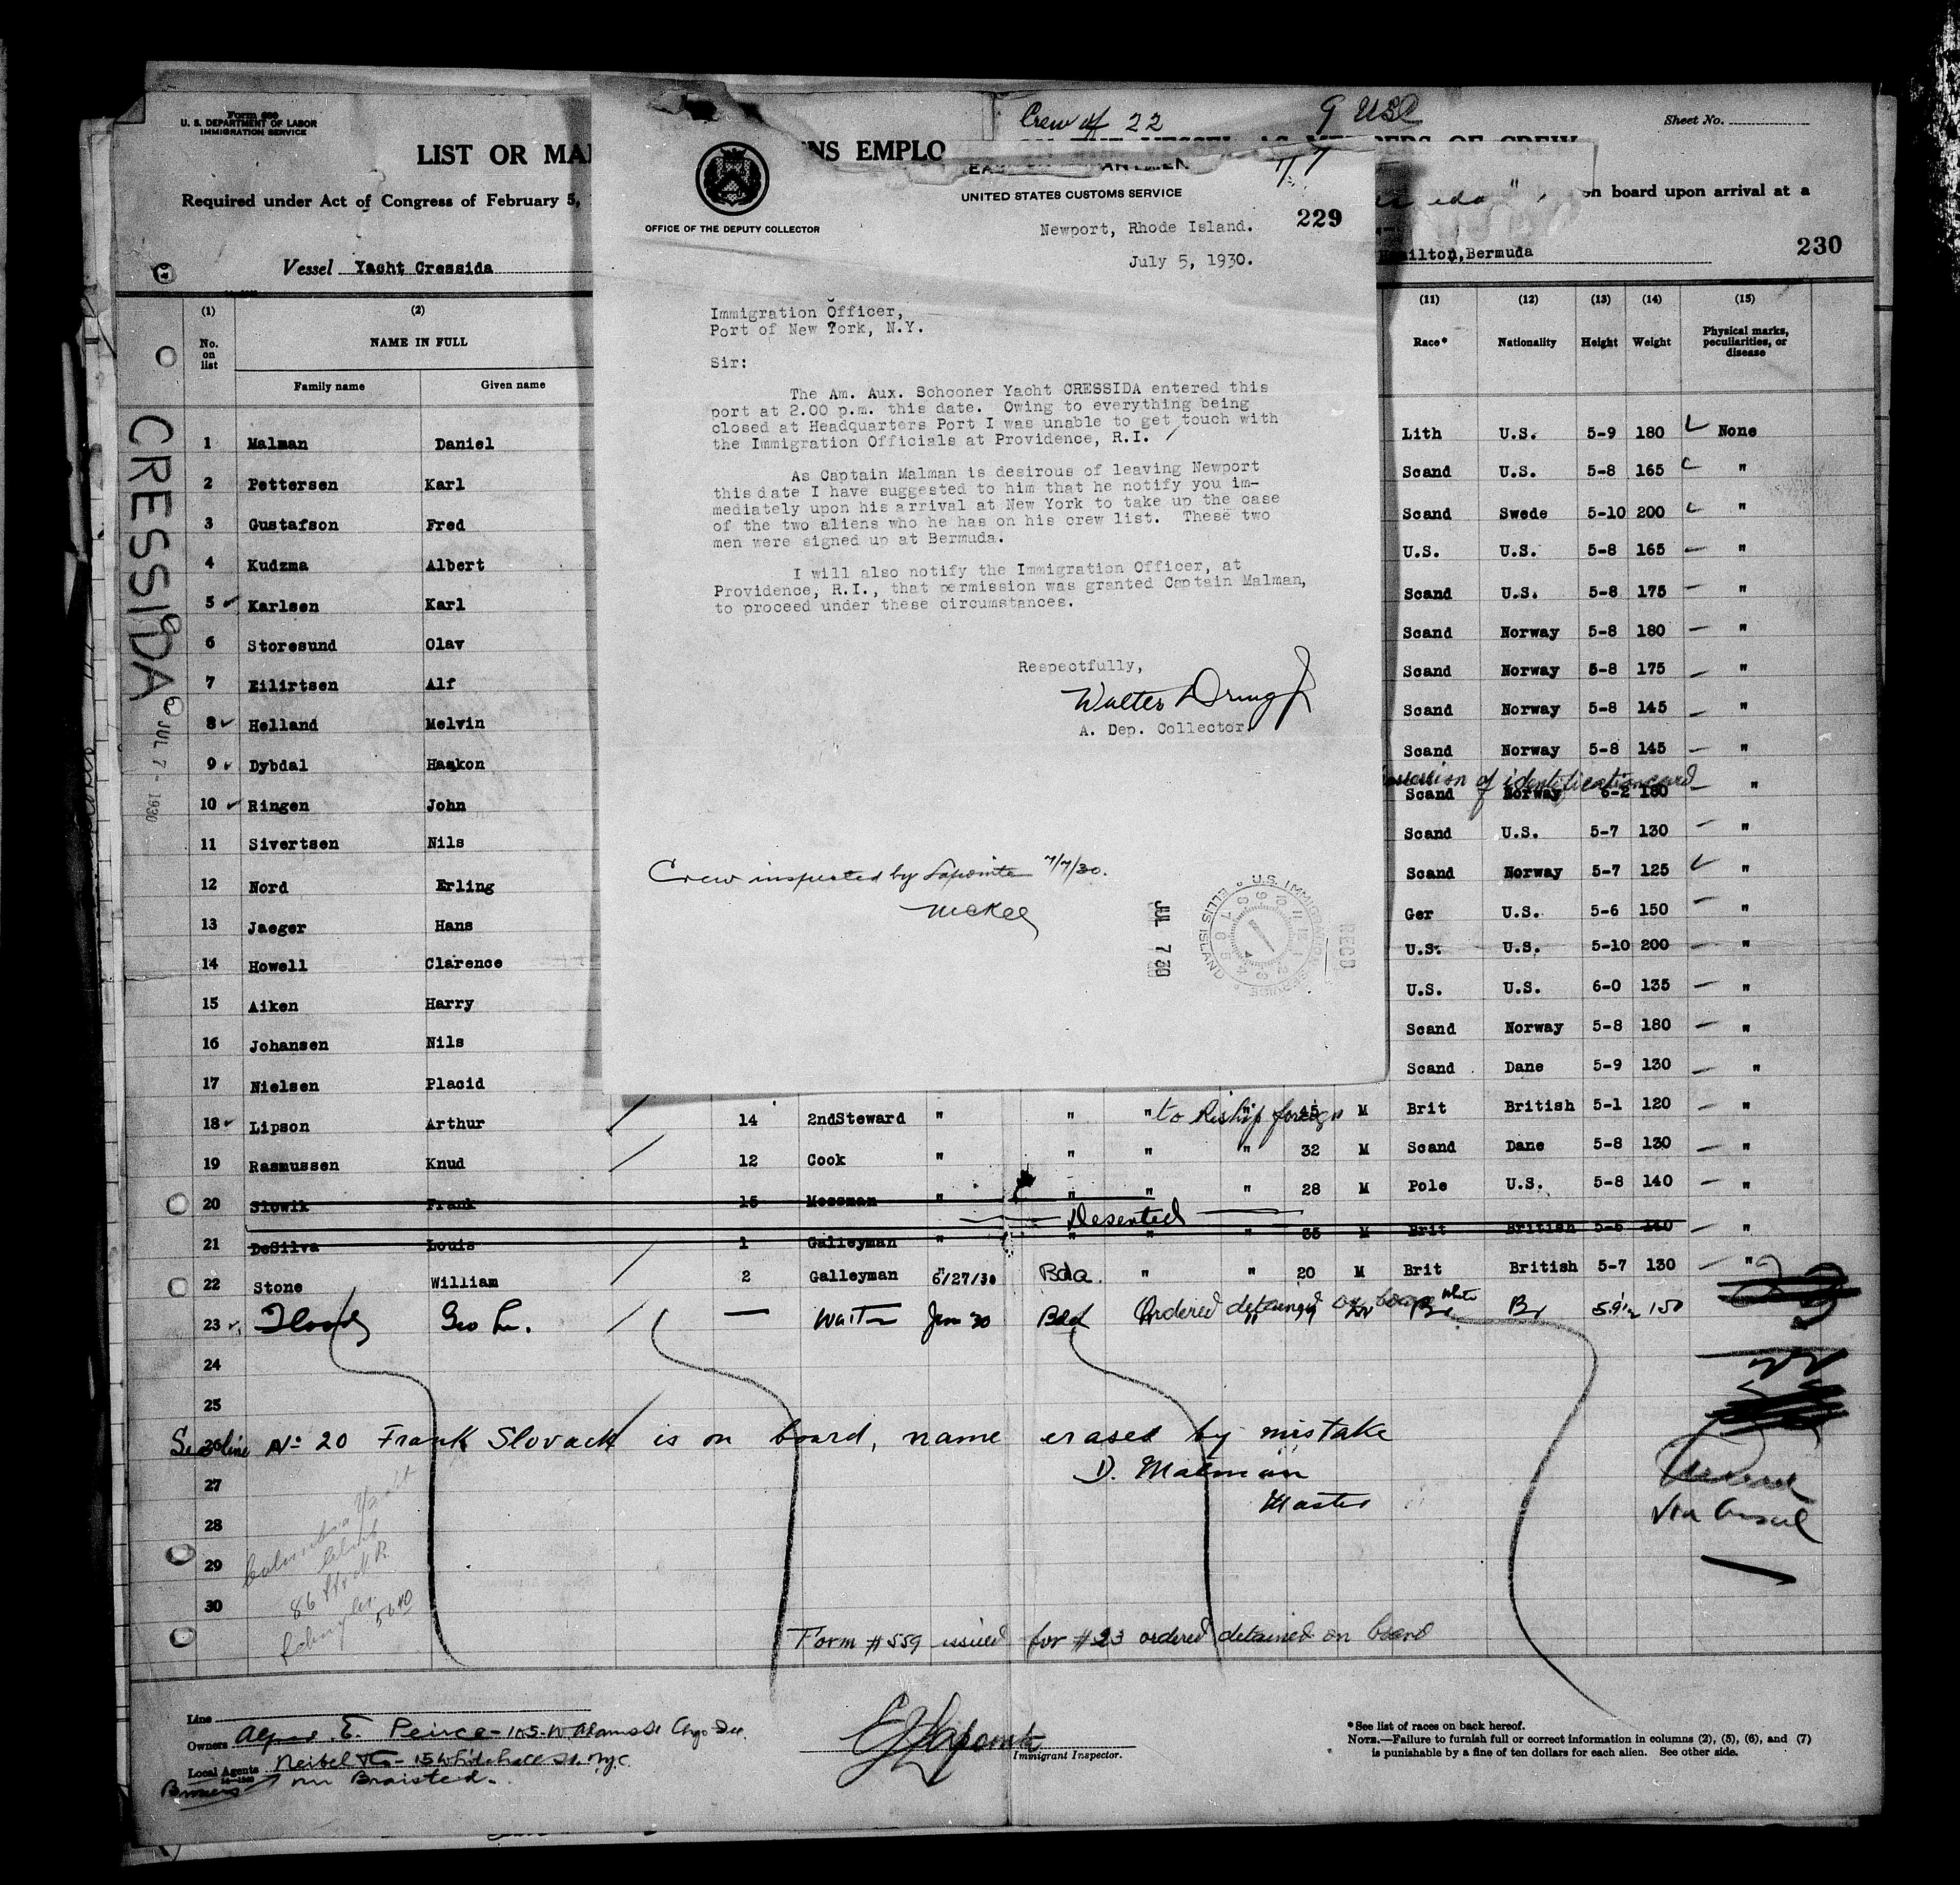 Form 680
U. S. DEPARTMENT OF LABOR
IMMIGRATION SERVICE
Crew of 22
9 USC
Sheet No.
LIST OR MA
NS EMPLO
Required under Act of Congress of February 5,
on board upon arrival at a
Vessel Yacht Cressida
Hamilton, Bermuda
230
UNITED STATES CUSTOMS SERVICE
OFFICE OF THE DEPUTY COLLECTOR
229
Newport, Rhode Island.
July 5, 1930.
Immigration Officer,
Port of New York, N.Y.
Sir:
The Am. Aux. Schooner Yacht CRESSIDA entered this
port at 2.00 p.m. this date. Owing to everything being
closed at Headquarters Port I was unable to get touch with
the Immigration Officials at Providence, R.I.
As Captain Malman is desirous of leaving Newport
this date I have suggested to him that he notify you im-
mediately upon his arrival at New York to take up the case
of the two aliens who he has on his crew list. These two
men were signed up at Bermuda.
I will also notify the Immigration Officer, at
Providence, R.I., that permission was granted Captain Malman,
to proceed under these circumstances.
Respectfully,
Walter Dring Jr
A. Dep. Collector.
Crew inspected by Lapointe 7/7/30.
McKee
JUL 7 30
RECD
U.S. IMMIGRATION SERVICE ELLIS ISLAND
CRESSIDA
JUL 7 - 1930
(1) (2) (11) (12) (13) (14) (15)
No. on list NAME IN FULL Race* Nationality Height Weight Physical marks, peculiarities, or disease
Family name Given name
1 Malman Daniel Lith U.S. 5-9 180 None
2 Pettersen Karl Scand U.S. 5-8 165 "
3 Gustafson Fred Scand Swede 5-10 200 "
4 Kudzma Albert U.S. U.S. 5-8 165 "
5 Karlsen Karl Scand U.S. 5-8 175 "
6 Storesund Olav Scand Norway 5-8 180 "
7 Eilirtsen Alf Scand Norway 5-8 175 "
8 Helland Melvin Scand Norway 5-8 145 "
9 Dybdal Haakon Scand Norway 5-8 145 "
of identification card
10 Ringen John Scand Norway 6-2 180 "
11 Sivertsen Nils Scand U.S. 5-7 130 "
12 Nord Erling Scand Norway 5-7 125 "
13 Jaeger Hans Ger U.S. 5-6 150 "
14 Howell Clarence U.S. U.S. 5-10 200 "
15 Aiken Harry U.S. U.S. 6-0 135 "
16 Johansen Nils Scand Norway 5-8 180 "
17 Nielsen Placid Scand Dane 5-9 130 "
18 Lipson Arthur 14 2ndSteward " " " to Reship foreign M Brit British 5-1 120 "
19 Rasmussen Knud 12 Cook " " " " 32 M Scand Dane 5-8 130 "
20 Slowik Frank 15 Messman " " " " 28 M Pole U.S. 5-8 140 "
Deserted
21 DeSilva Louis 1 Galleyman " " " " 35 M Brit British 5-6 140 "
22 Stone William 2 Galleyman 6/27/30 Bda. " " 20 M Brit British 5-7 130 "
23 Flood Geo L. Waiter Jun 30 Bda Ordered detained on board White Br 5.9½ 150
24
25
26 See line No 20 Frank Slovack is on board, name erased by mistake
D. Malman
27
Master
28
29
30
Columbia Yacht
Club
86 St
Form #559 issued for #23 ordered detained on board
Line
Owners Alfred E. Peirce - 105 W Adams St Cgo
Local Agents 15 Whitehall St. NYC
Braisted.
Immigrant Inspector.
*See list of races on back hereof.
NOTE.—Failure to furnish full or correct information in columns (2), (5), (6), and (7)
is punishable by a fine of ten dollars for each alien. See other side.